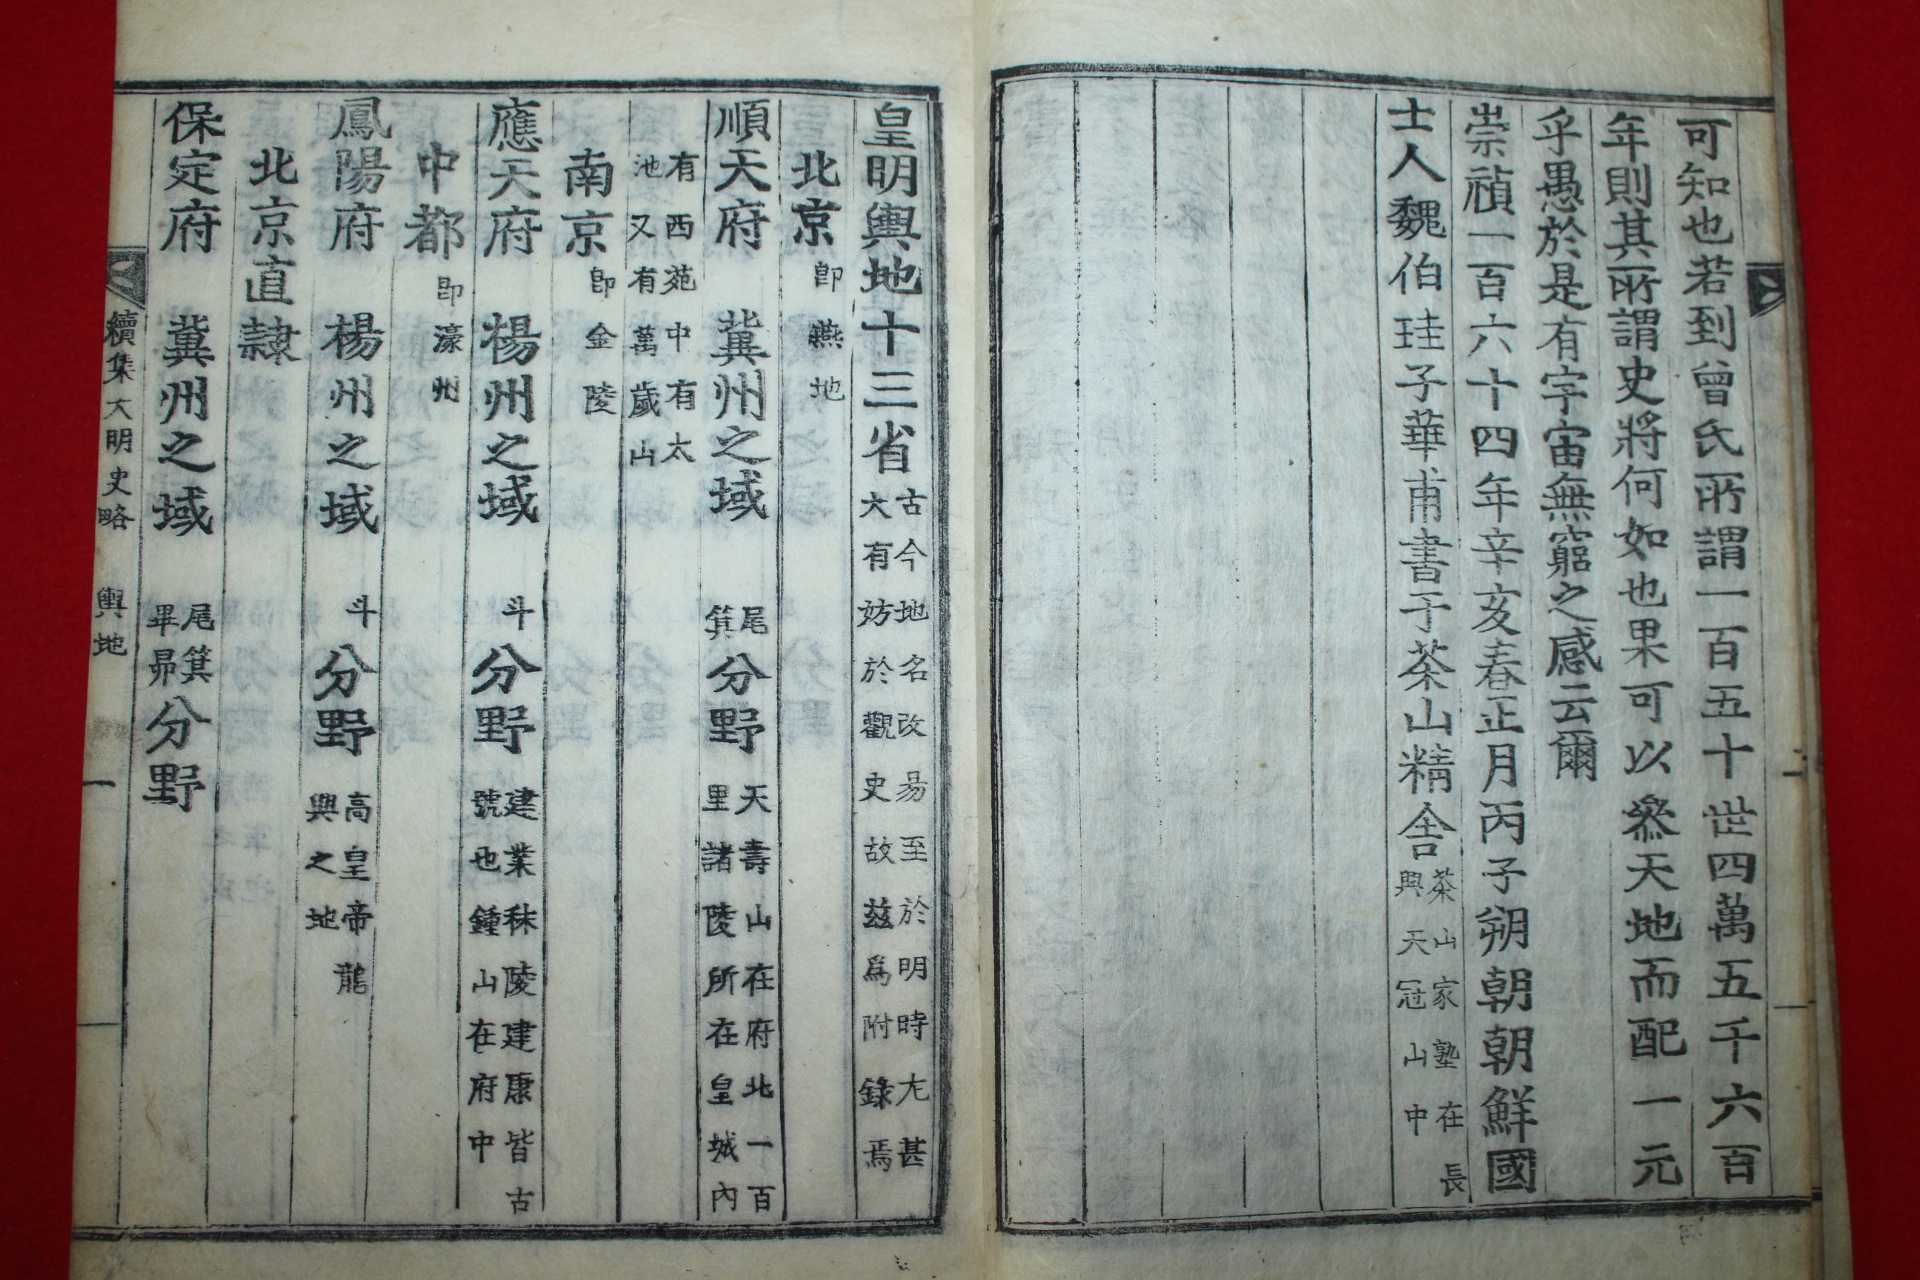 可知也若到曾氏所謂一百五十世四萬五千六百
年則其所謂史將何如也果可以參天地而配一元
乎愚於是有宇宙無窮之感云爾
崇禎一百六十四年辛亥春正月丙子朔朝朝鮮國
士人魏伯珪子華甫書于茶山精舍
茶山家塾在長
興天冠山中
皇明輿地十三省
古今地名改易至於明時尤甚
大有妨於觀史故玆爲附錄焉
北京
卽燕地
順天府 冀州之域
尾
箕
分野
天壽山在府北一百
里諸陵所在皇城內
有西苑中有太
池又有萬歲山
南京
卽金陵
應天府 楊州之域
斗
分野
建業秣陵建康皆古
號也鍾山在府中
中都
卽濠州
鳳陽府 楊州之域
斗
分野
高皇帝龍
興之地
北京直隸
保定府 冀州之域
尾箕
畢昴
分野
續集大明史略 輿地 一